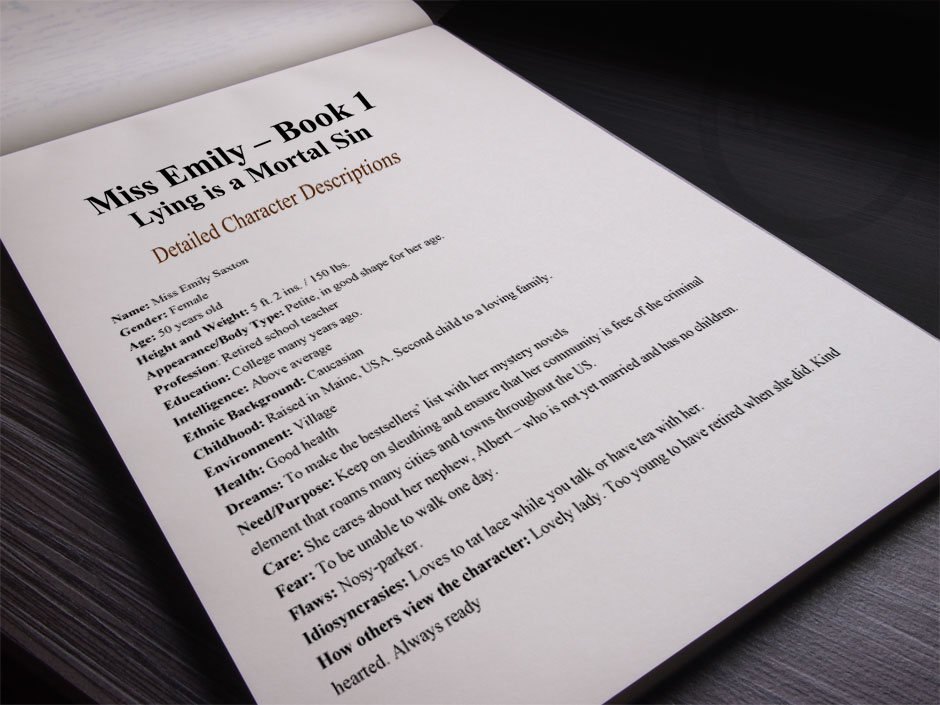 Miss Emily – Book 1
Lying is a Mortal Sin
Detailed Character Descriptions
Name: Miss Emily Saxton
Gender: Female
Age: 50 years old
Height and Weight: 5 ft. 2 ins. / 150 lbs.
Appearance/Body Type: Petite, in good shape for her age.
Profession: Retired school teacher
Education: College many years ago.
Intelligence: Above average
Ethnic Background: Caucasian
Childhood: Raised in Maine, USA. Second child to a loving family.
Environment: Village
Health: Good health
Dreams: To make the bestsellers' list with her mystery novels
Need/Purpose: Keep on sleuthing and ensure that her community is free of the criminal
element that roams many cities and towns throughout the US.
Care: She cares about her nephew, Albert – who is not yet married and has no children.
Fear: To be unable to walk one day.
Flaws: Nosy-parker.
Idiosyncrasies: Loves to tat lace while you talk or have tea with her.
How others view the character: Lovely lady. Too young to have retired when she did. Kind
hearted. Always ready